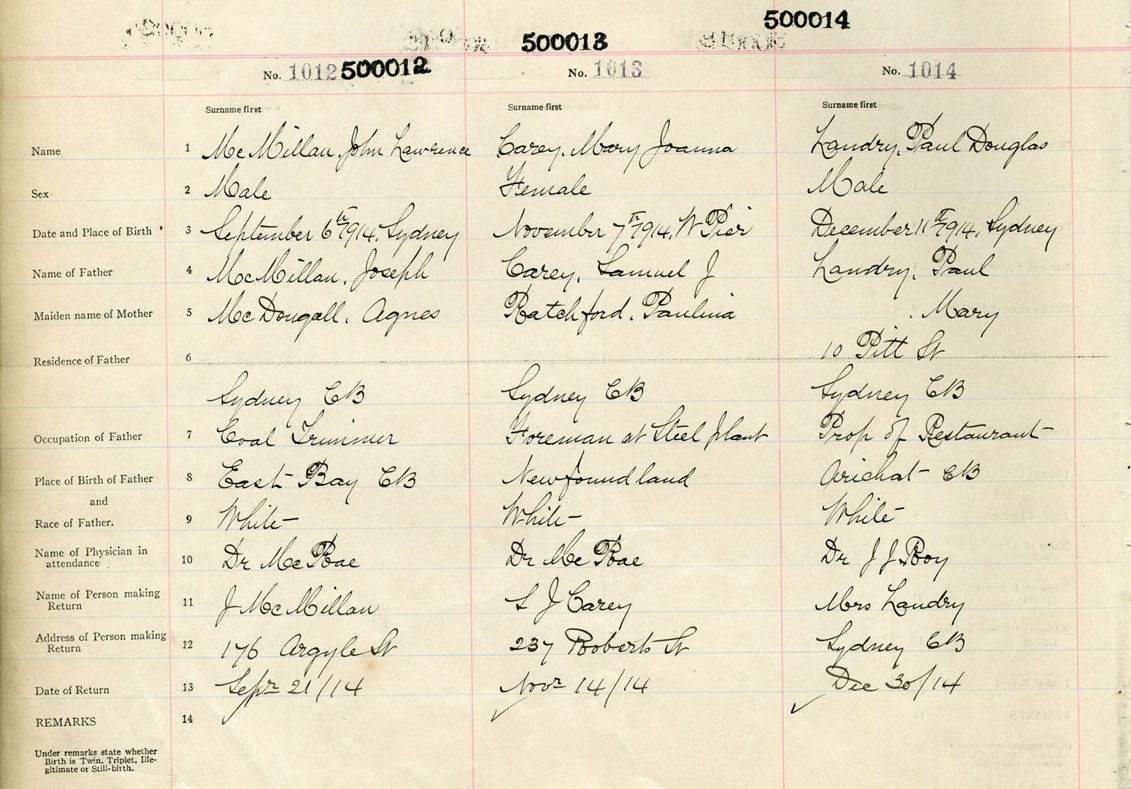 500014
500013
No. 1012 500012 No. 1013 No. 1014
Surname first Surname first Surname first
Name 1 McMillan, John Lawrence Carey, Mary Joanna Landry, Paul Douglas
Sex 2 Male Female Male
Date and Place of Birth 3 September 6th 1914, Sydney November 7th 1914, W Pier December 11th 1914, Sydney
Name of Father 4 McMillan, Joseph Carey, Samuel J Landry, Paul
Maiden name of Mother 5 McDougall, Agnes Ratchford, Paulina Mary
Residence of Father 6 10 Pitt St
Sydney CB Sydney CB Sydney CB
Occupation of Father 7 Coal Trimmer Foreman at Steel plant Prop of Restaurant
Place of Birth of Father 8 East Bay CB Newfoundland Arichat CB
and
Race of Father. 9 White White White
Name of Physician in
attendance 10 Dr McRae Dr McRae Dr J J Roy
Name of Person making
Return 11 J McMillan S J Carey Mrs Landry
Address of Person making
Return 12 176 Argyle St 237 Roberts St Sydney CB
Date of Return 13 Sepr 21/14 Novr 14/14 Dec 30/14
REMARKS 14
Under remarks state whether
Birth is Twin, Triplet, Ille-
gitimate or Still-birth.